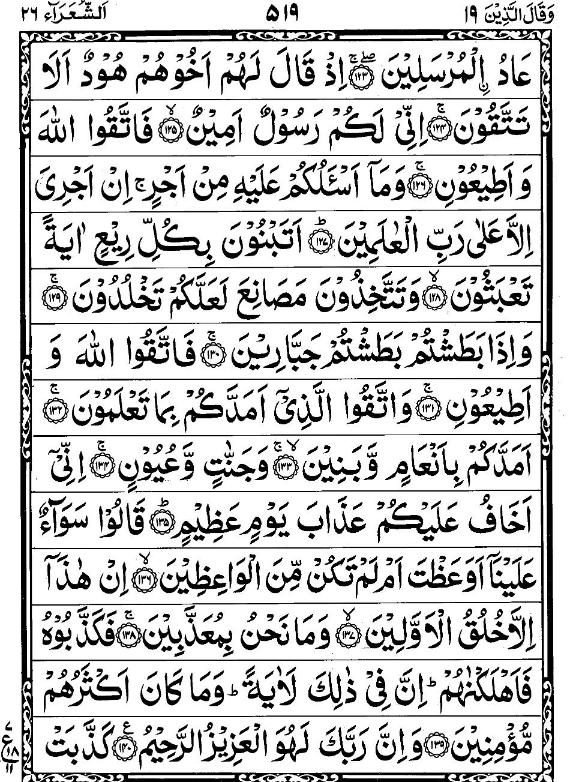 وَقَالَ الَّذِيْنَ ١٩ ٥١٩ اَلشُّعَرَآء ٢٦
عَادُ اِۨلْمُرْسَلِيْنَ ﴿١٢٣﴾ اِذْ قَالَ لَهُمْ اَخُوْهُمْ هُوْدٌ اَلَا
تَتَّقُوْنَ ﴿١٢٤﴾ اِنِّىْ لَكُمْ رَسُوْلٌ اَمِيْنٌ ﴿١٢٥﴾ فَاتَّقُوا اللّٰهَ
وَ اَطِيْعُوْنِ ﴿١٢٦﴾ وَمَآ اَسْـَٔلُكُمْ عَلَيْهِ مِنْ اَجْرٍ ۚ اِنْ اَجْرِىَ
اِلَّا عَلٰى رَبِّ الْعٰلَمِيْنَ ﴿١٢٧﴾ اَتَبْنُوْنَ بِكُلِّ رِيْعٍ اٰيَةً
تَعْبَثُوْنَ ﴿١٢٨﴾ وَتَتَّخِذُوْنَ مَصَانِعَ لَعَلَّكُمْ تَخْلُدُوْنَ ﴿١٢٩﴾
وَاِذَا بَطَشْتُمْ بَطَشْتُمْ جَبَّارِيْنَ ﴿١٣٠﴾ فَاتَّقُوا اللّٰهَ وَ
اَطِيْعُوْنِ ﴿١٣١﴾ وَاتَّقُوا الَّذِىْٓ اَمَدَّكُمْ بِمَا تَعْلَمُوْنَ ﴿١٣٢﴾
اَمَدَّكُمْ بِاَنْعَامٍ وَّبَنِيْنَ ﴿١٣٣﴾ وَجَنّٰتٍ وَّعُيُوْنٍ ﴿١٣٤﴾ اِنِّىْٓ
اَخَافُ عَلَيْكُمْ عَذَابَ يَوْمٍ عَظِيْمٍ ﴿١٣٥﴾ قَالُوْا سَوَآءٌ
عَلَيْنَآ اَوَعَظْتَ اَمْ لَمْ تَكُنْ مِّنَ الْوَاعِظِيْنَ ﴿١٣٦﴾ اِنْ هٰذَآ
اِلَّا خُلُقُ الْاَوَّلِيْنَ ﴿١٣٧﴾ وَمَا نَحْنُ بِمُعَذَّبِيْنَ ﴿١٣٨﴾ فَكَذَّبُوْهُ
فَاَهْلَكْنٰهُمْ ؕ اِنَّ فِىْ ذٰلِكَ لَاٰيَةً ؕ وَمَا كَانَ اَكْثَرُهُمْ
مُّؤْمِنِيْنَ ﴿١٣٩﴾ وَاِنَّ رَبَّكَ لَهُوَ الْعَزِيْزُ الرَّحِيْمُ ﴿١٤٠﴾ كَذَّبَتْ
٧
ع
١٨
١١